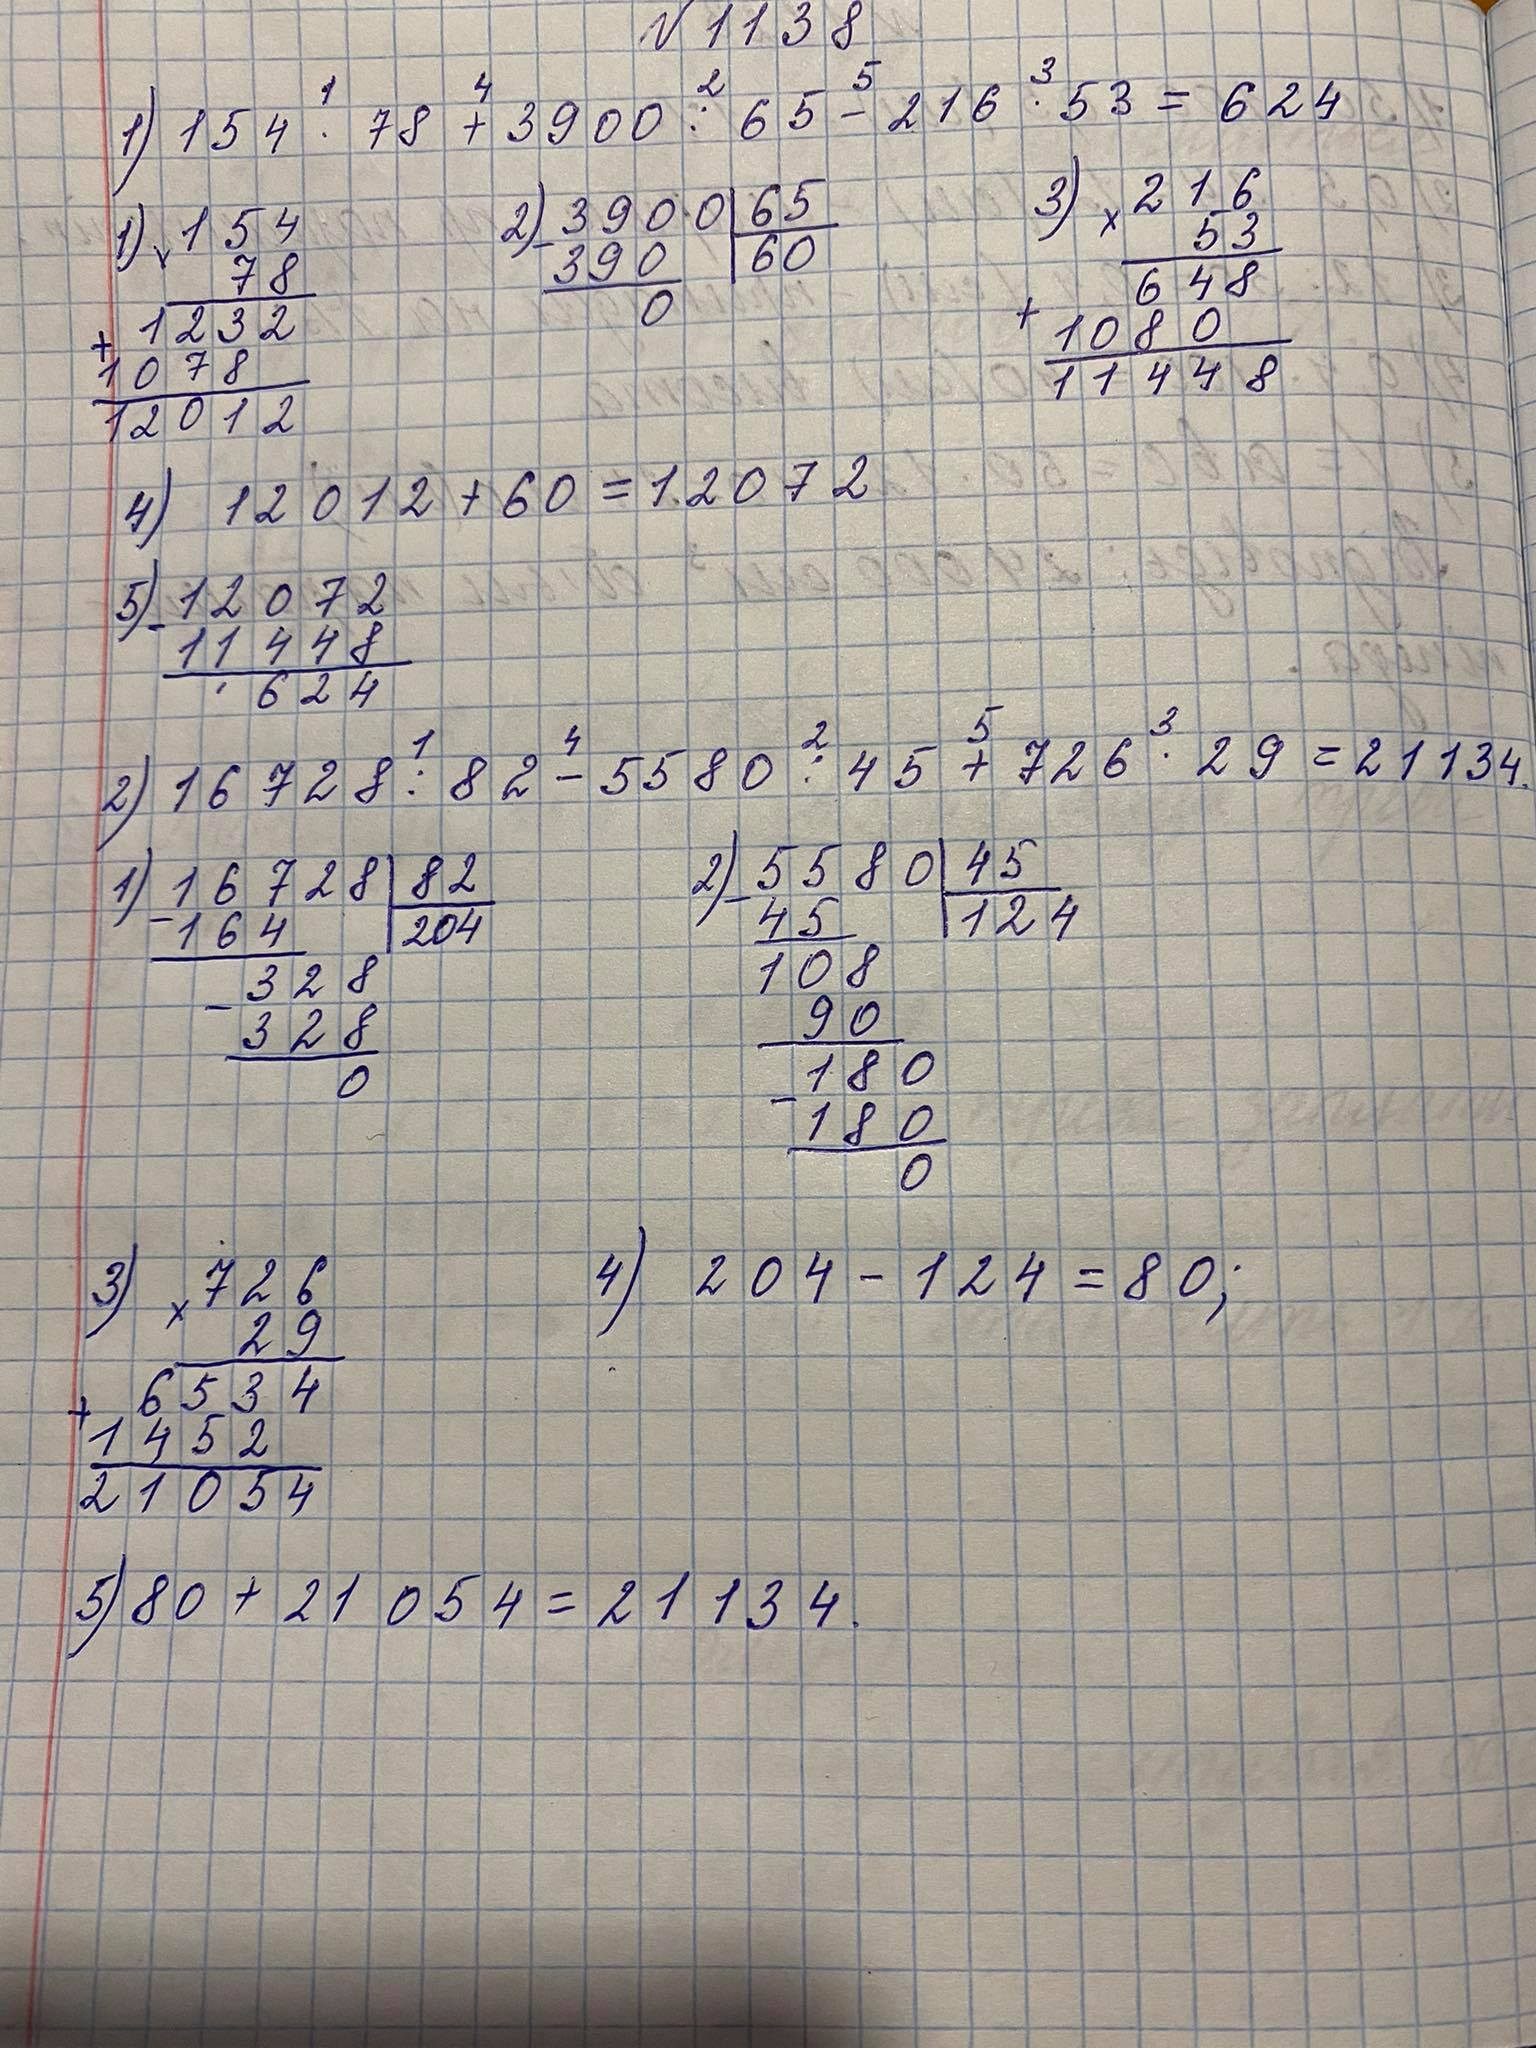 №1138
1) 154 · 78 + 3900 : 65 - 216 · 53 = 624
1 4 2 5 3
1) × 154
78
+ 1232
1078
12012
2) - 3900 | 65
390 | 60
0
3) × 216
53
+ 648
1080
11448
4) 12012 + 60 = 12072
5) - 12072
11448
624
2) 16728 : 82 - 5580 : 45 + 726 · 29 = 21134.
1 4 2 5 3
1) - 16728 | 82
164 | 204
- 328
328
0
2) - 5580 | 45
45 | 124
108
90
- 180
180
0
3) × 726
29
+ 6534
1452
21054
4) 204 - 124 = 80;
5) 80 + 21054 = 21134.